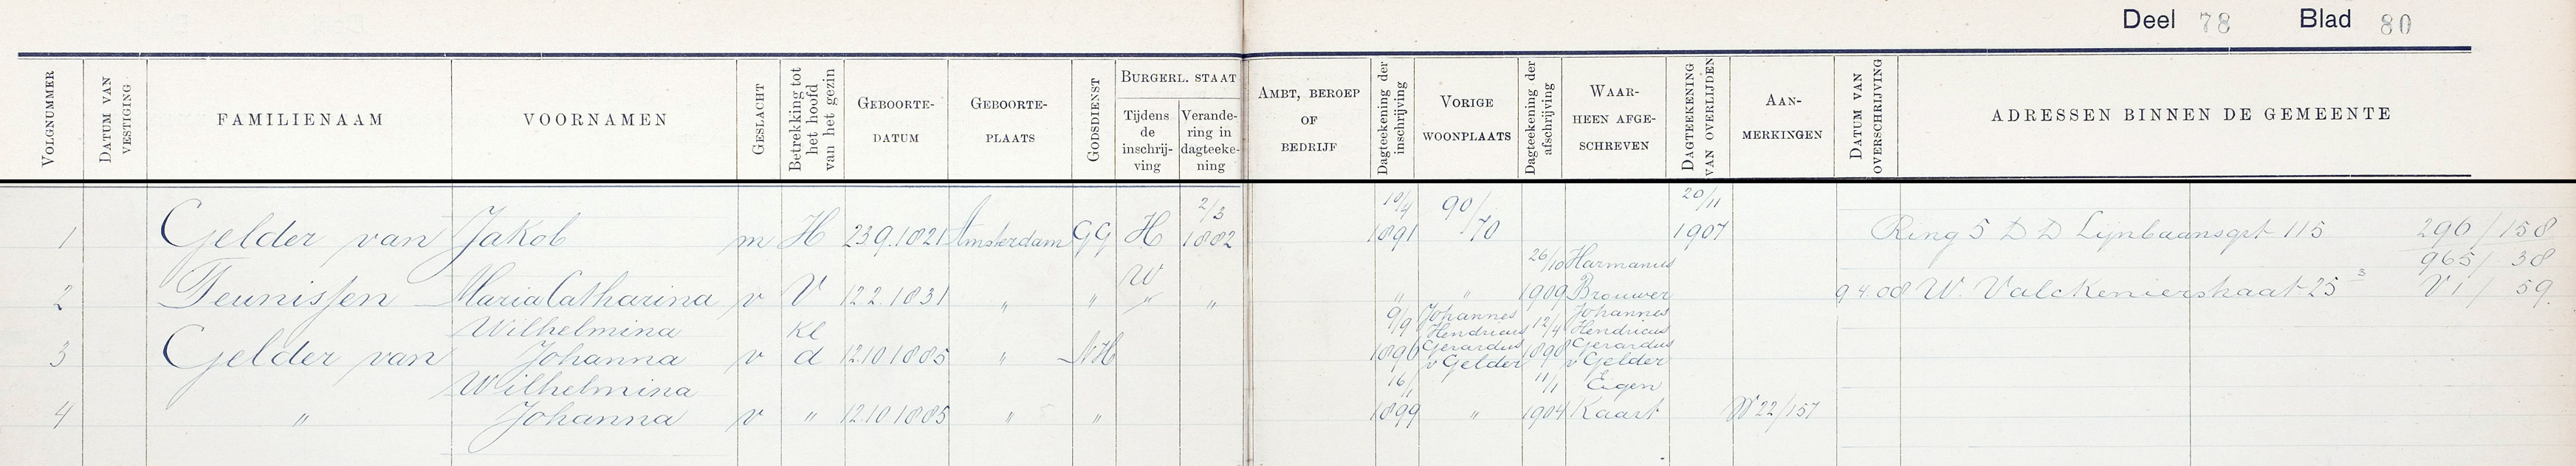 Deel 78 Blad 80
VOLGNUMMER
DATUM VAN VESTIGING
FAMILIENAAM
VOORNAMEN
GESLACHT
Betrekking tot het hoofd van het gezin
GEBOORTE-DATUM
GEBOORTE-PLAATS
GODSDIENST
BURGERL. STAAT
Tijdens de inschrij-ving
Verande-ring in dagteeke-ning
AMBT, BEROEP OF BEDRIJF
Dagteekening der inschrijving
VORIGE WOONPLAATS
Dagteekening der afschrijving
WAAR-HEEN AFGE-SCHREVEN
DAGTEEKENING VAN OVERLIJDEN
AAN-MERKINGEN
DATUM VAN OVERSCHRIJVING
ADRESSEN BINNEN DE GEMEENTE
2/3 10/4 90/ 20/11
1 Gelder van Jakob m H 23.9.1821 Amsterdam GG H 1882 1891 70 1907 Ring 5 D D Lijnbaansgrt 115 290/158
W 26/10 Harmanus 965/38
2 Teunissen Maria Catharina v V 12.2.1831 " " " " " " 1909 Brouwer 9 4 08 W. Valckenierstraat 25 3 VI/59
Wilhelmina Kl 9/9 Johannes Hendricus 12/4 Johannes Hendricus
3 Gelder van Johanna v d 12.10.1885 " NH 1896 Gerardus v Gelder 1898 Gerardus v Gelder
Wilhelmina 16/11 11/1 Eigen
4 " Johanna v " 12.10.1885 " " 1899 " 1904 Kaart W 22/157